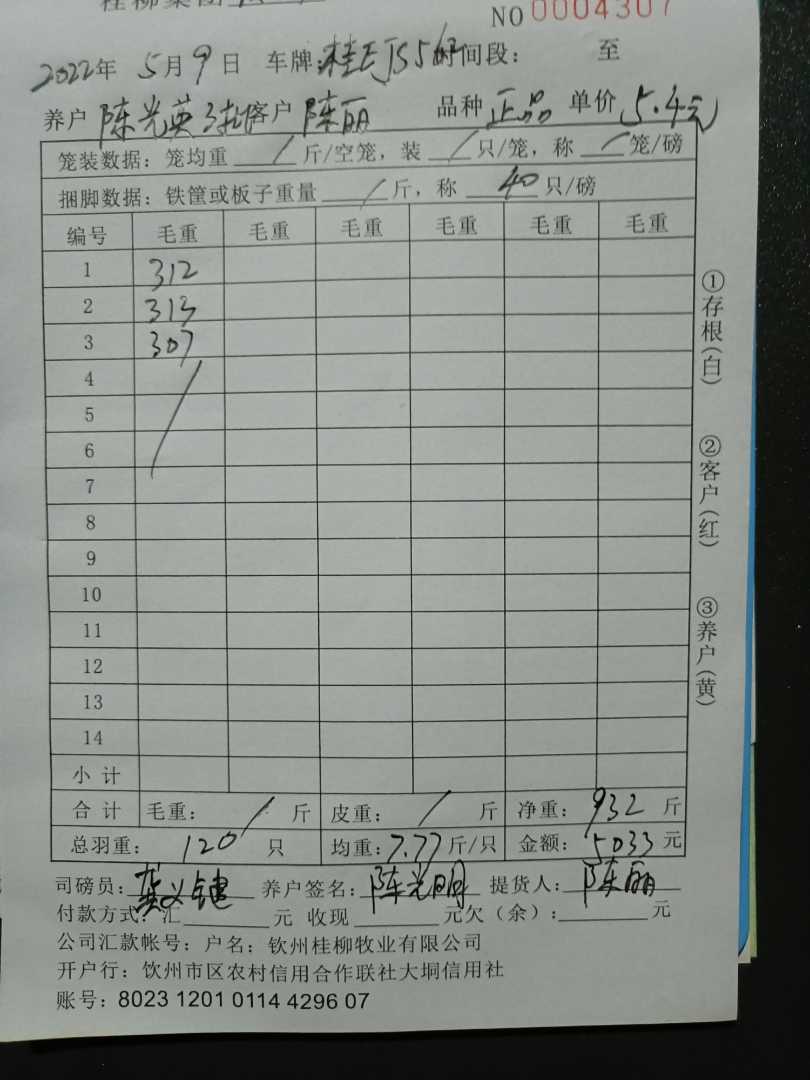 桂柳集团
NO 0004307
2022年 5月9日 车牌:桂EJS5 时间段: 至
养户 陈光英3批 客户 陈丽 品种 正品 单价 5.4元
笼装数据: 笼均重 / 斤/空笼, 装 / 只/笼, 称 / 笼/磅
捆脚数据: 铁筐或板子重量 / 斤, 称 40 只/磅
编号 毛重 毛重 毛重 毛重 毛重 毛重
1 312
2 313
3 307
4
5
6
7
8
9
10
11
12
13
14
小计
合计 毛重: / 斤 皮重: / 斤 净重: 932 斤
总羽重: 120 只 均重: 7.77 斤/只 金额: 5033 元
司磅员: 龚义键 养户签名: 陈光明 提货人: 陈丽
付款方式: 汇 元 收现 元欠(余): 元
公司汇款帐号: 户名: 钦州桂柳牧业有限公司
开户行: 钦州市区农村信用合作联社大垌信用社
账号: 8023 1201 0114 4296 07
①存根(白)
②客户(红)
③养户(黄)